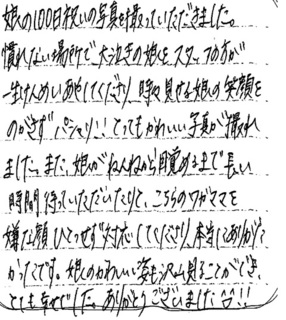 娘の100日祝いの写真を撮っていただきました。
慣れない場所で大泣きの娘をスタッフの方が
一生けんめいあやしてくださり、時々見せる娘の笑顔を
のがさずパシャリ!! とってもかわいい写真が撮れ
ました。また、娘がねんねから目覚めるまで長い
時間待っていただいたりと、こちらのワガママを
嫌な顔ひとつせず対応してくださり、本当にありがた
かったです。娘のかわいい姿も沢山見ることができ、
とても幸せでした。ありがとうございました!!